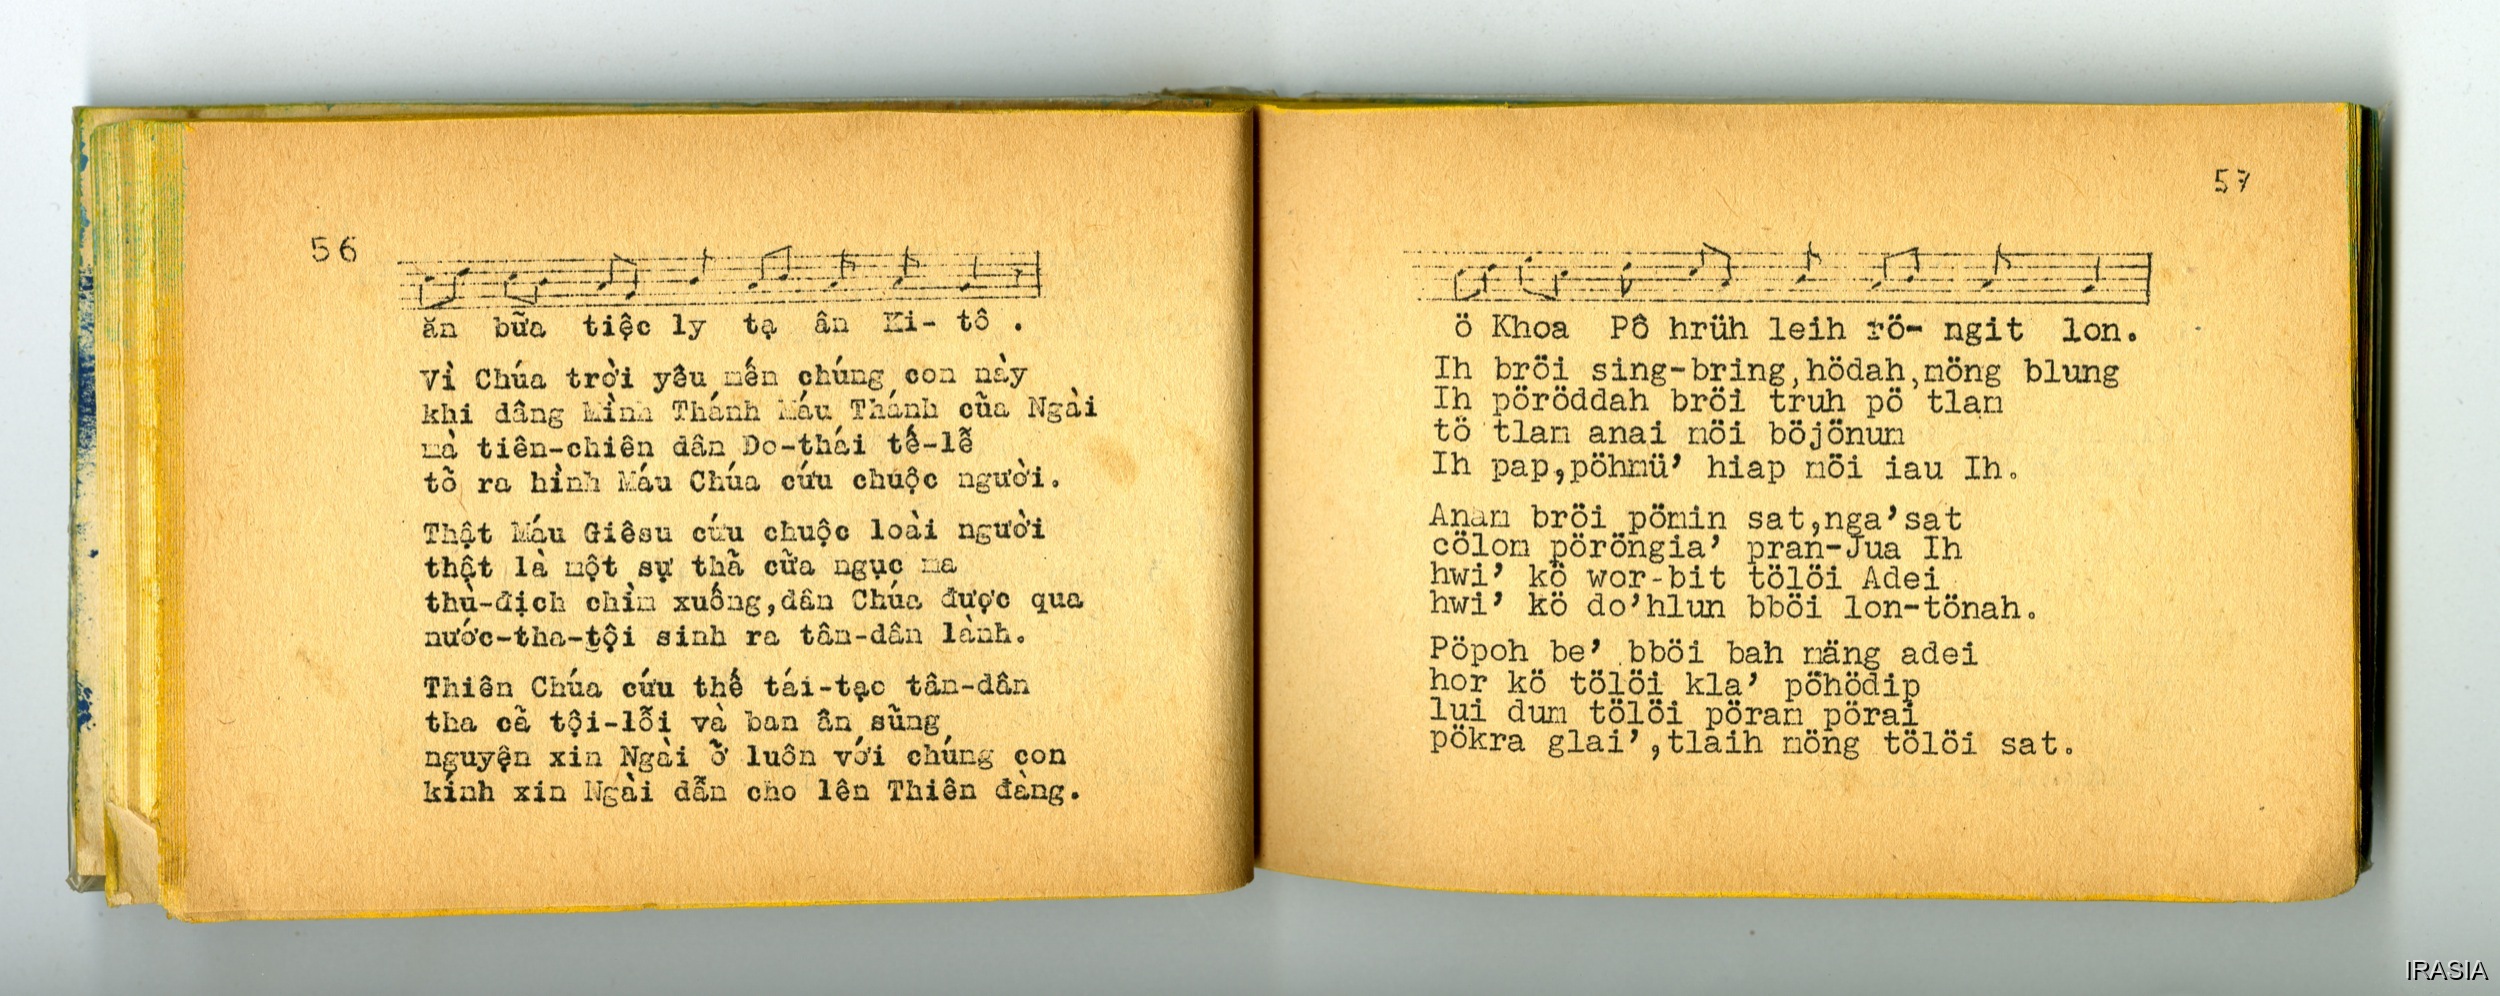 56
ăn bữa tiệc ly tạ ân Ki- tô .
Vì Chúa trời yêu mến chúng con này
khi dâng Mình Thánh Máu Thánh cũa Ngài
mà tiên-chiên dân Do-thái tế-lễ
tõ ra hình Máu Chúa cứu chuộc người.
Thật Máu Giêsu cứu chuộc loài người
thật là một sự thã cữa ngục ma
thù-địch chìm xuống,dân Chúa được qua
nước-tha-tội sinh ra tân-dân lành.
Thiên Chúa cứu thế tái-tạo tân-dân
tha cã tội-lỗi và ban ân sũng
nguyện xin Ngài ỡ luôn với chúng con
kính xin Ngài dẫn cho lên Thiên đàng.
57
ö Khoa Pô hrüh leih rö- ngit lon.
Ih bröi sing-bring,hödah,möng blung
Ih pöröddah bröi truh pö tlam
tö tlam anai möi böjönum
Ih pap,pöhmü' hiap möi iau Ih.
Anam bröi pömin sat,nga'sat
cölom pöröngia' pran-Jua Ih
hwi' kö wor-bit tölöi Adei
hwi' kö do'hlun bböi lon-tönah.
Pöpoh be' bböi bah mäng adei
hor kö tölöi kla' pöhödip
lui dum tölöi pöran pörai
pökra glai',tlaih möng tölöi sat.
IRASIA